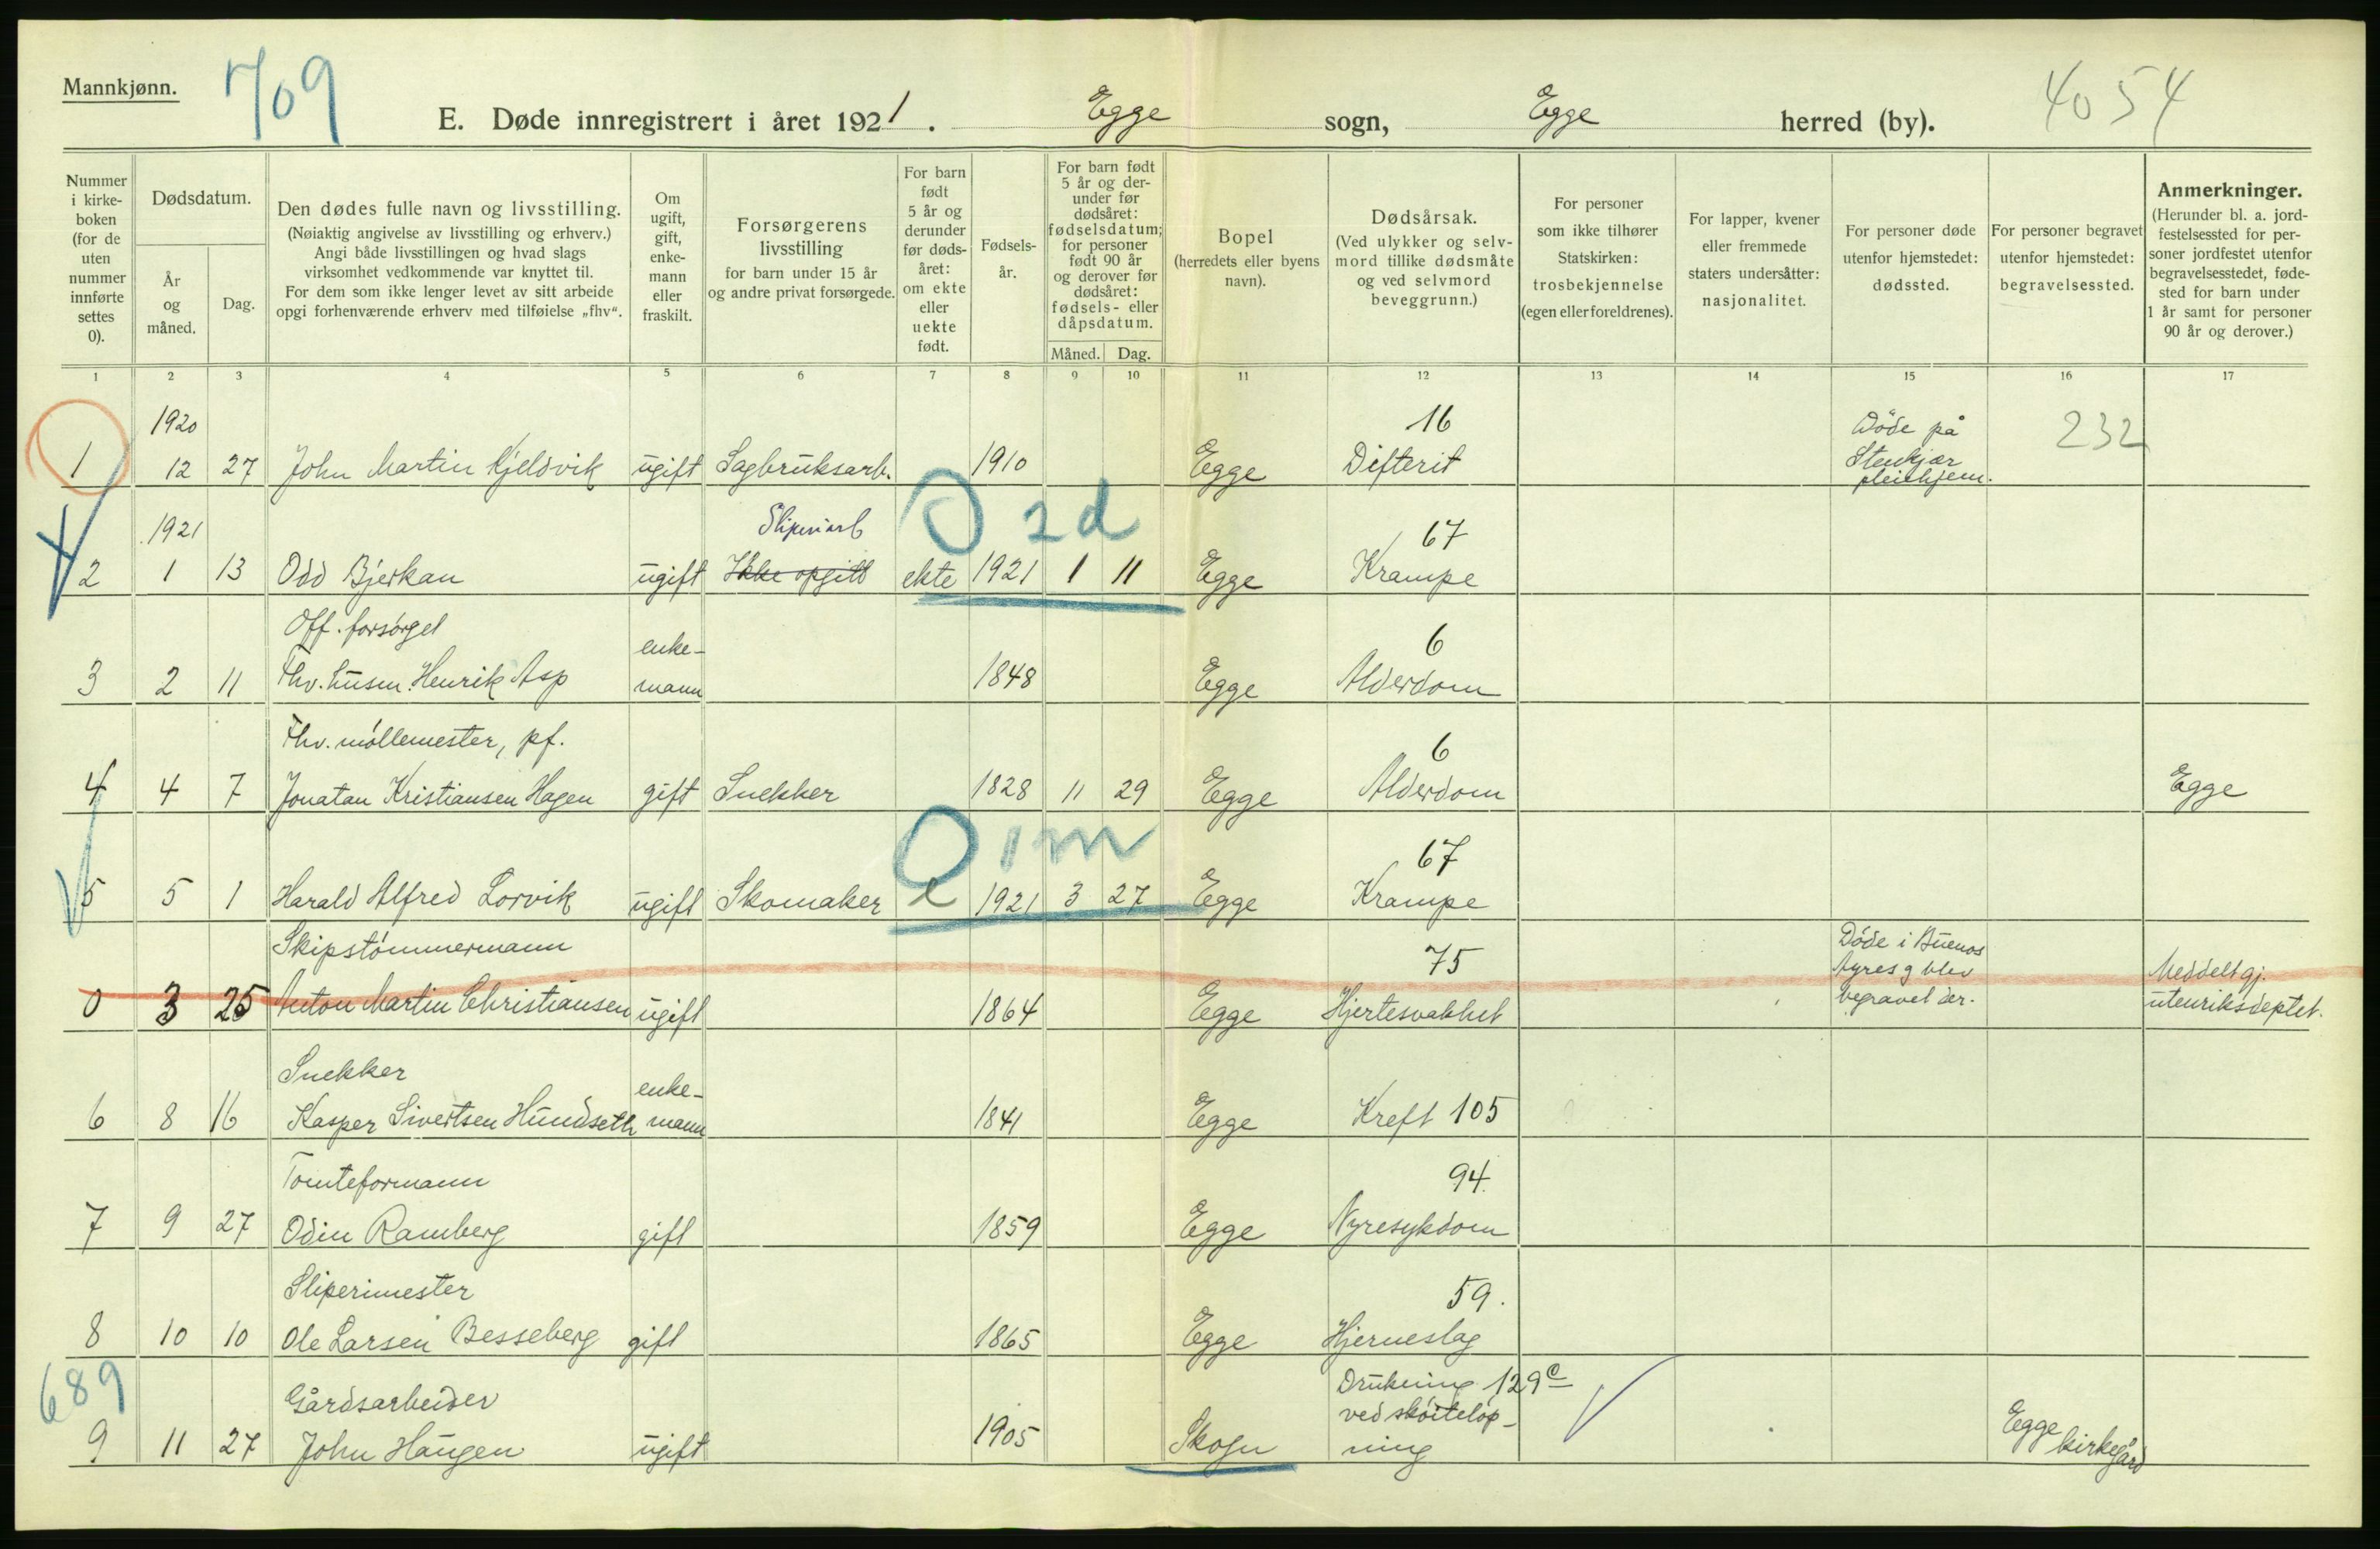 Mannkjønn.
709
E. Døde innregistrert i året 1921. Egge sogn, Egge herred (by).
4054
Nummer
i kirke-
boken
(for de
uten
nummer
innførte
settes
0).
Dødsdatum.
År
og
måned.
Dag.
Den dødes fulle navn og livsstilling.
(Nøiaktig angivelse av livsstilling og erhverv.)
Angi både livsstillingen og hvad slags
virksomhet vedkommende var knyttet til.
For dem som ikke lenger levet av sitt arbeide
opgi forhenværende erhverv med tilføielse „fhv“.
Om
ugift,
gift,
enke-
mann
eller
fraskilt.
Forsørgerens
livsstilling
for barn under 15 år
og andre privat forsørgede.
For barn
født
5 år og
derunder
før døds-
året:
om ekte
eller
uekte
født.
Fødsels-
år.
For barn født
5 år og der-
under før
dødsåret:
fødselsdatum;
for personer
født 90 år
og derover før
dødsåret:
fødsels- eller
dåpsdatum.
Måned. Dag.
Bopel
(herredets eller byens
navn).
Dødsårsak.
(Ved ulykker og selv-
mord tillike dødsmåte
og ved selvmord
beveggrunn.)
For personer
som ikke tilhører
Statskirken:
trosbekjennelse
(egen eller foreldrenes).
For lapper, kvener
eller fremmede
staters undersåtter:
nasjonalitet.
For personer døde
utenfor hjemstedet:
dødssted.
For personer begravet
utenfor hjemstedet:
begravelsessted.
Anmerkninger.
(Herunder bl. a. jord-
festelsessted for per-
soner jordfestet utenfor
begravelsesstedet, føde-
sted for barn under
1 år samt for personer
90 år og derover.)
1 2 3 4 5 6 7 8 9 10 11 12 13 14 15 16 17
1920 16 Döde på 232
1 12 27 John Martin Kjeldvik ugift Sagbruksarb. 1910 Egge Difterit Stenkjær
pleiehjem.
1921 Sliperiarb 0 2d 67
2 1 13 Odd Bjerkan ugift Ikke opgitt ekte 1921 1 11 Egge Krampe
Off. forsørget enke- 6
3 2 11 Fhv. husm. Henrik Asp mann 1848 Egge Alderdom
Fhv. møllemester, pf. 6
4 4 7 Jonatan Kristiansen Hagen gift Snekker 1828 11 29 Egge Alderdom Egge
0 1m 67
5 5 1 Harald Alfred Lorvik ugift Skomaker e 1921 3 27 Egge Krampe
Skipstømmermann 75 Døde i Buenos
Ayres g blev Meddelt gj.
0 3 25 Anton Martin Christiansen ugift 1864 Egge Hjertesvakhet begravet der. utenriksdeptet.
Snekker enke-
6 8 16 Kasper Sivertsen Hundseth mann 1841 Egge Kreft 105
Tomteformann 94.
7 9 27 Odin Ramberg gift 1859 Egge Nyresykdom
Sliperimester 59.
8 10 10 Ole Larsen Besseberg gift 1865 Egge Hjerneslag
689 Gårdsarbeider Drukning 129c
ved skøiteløp-
9 11 27 John Haugen ugift 1905 Skogn ning Egge kirkegård